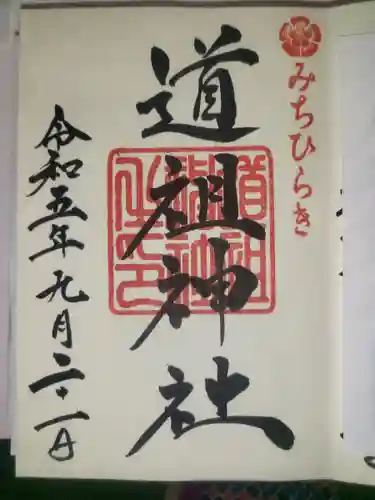 みちひらき
道祖神社
令和五年九月二十一日